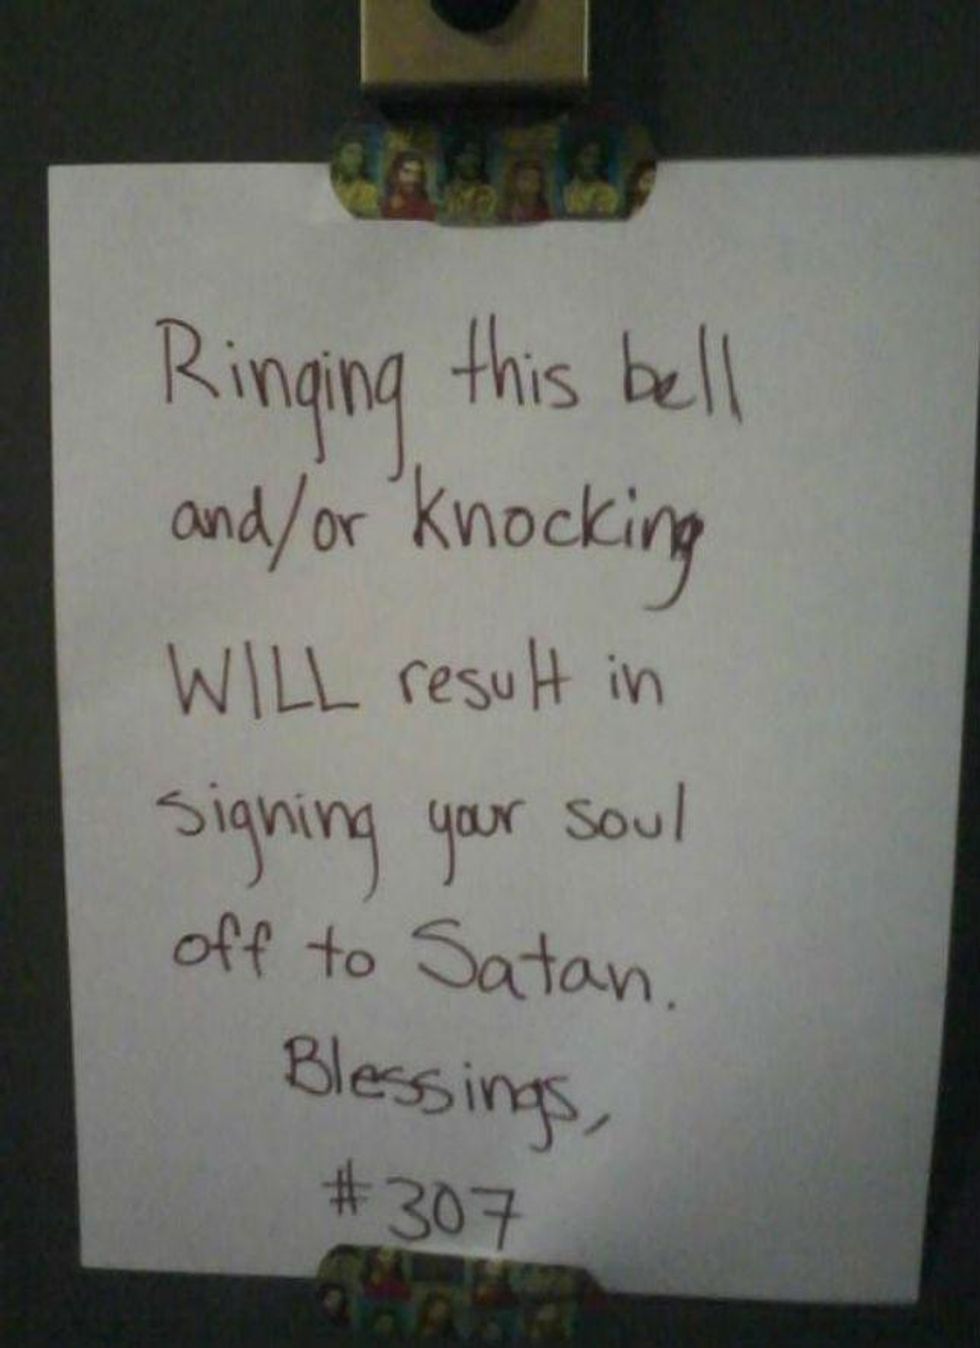 Ringing this bell
and/or knocking
WILL result in
signing your soul
off to Satan.
Blessings,
#307